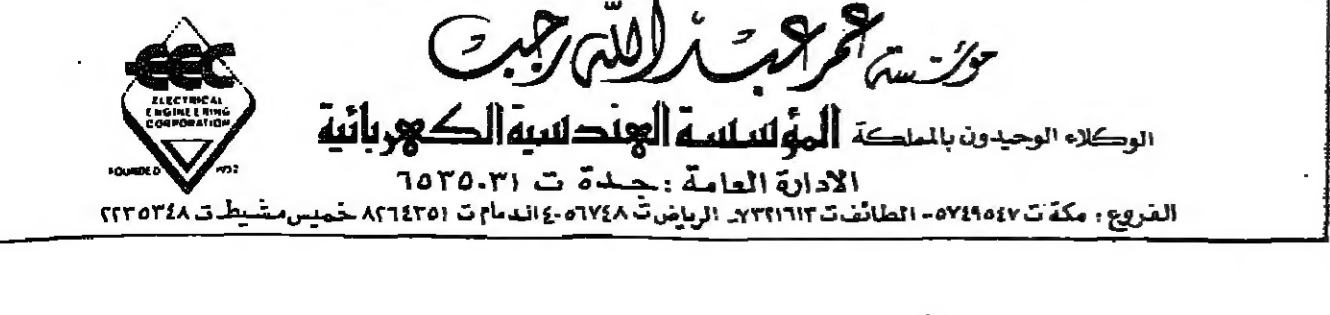 مؤسسة عمر عبد الله رجب
EEC
ELECTRICAL
ENGINEERING
CORPORATION
FOUNDED 1952
الوكلاء الوحيدون بالمملكة المؤسسة الهندسية الكهربائية
الادارة العامة : جدة ت ٦٥٣٥٠٣١
الفروع : مكة ت ٥٧٤٩٥٤٧ - الطائف ت ٧٣٢١٦١٣ - الرياض ت ٤٠٥٦٧٤٨ - الدمام ت ٨٢٦٤٣٥١ خميس مشيط ت ٢٢٣٥٣٤٨